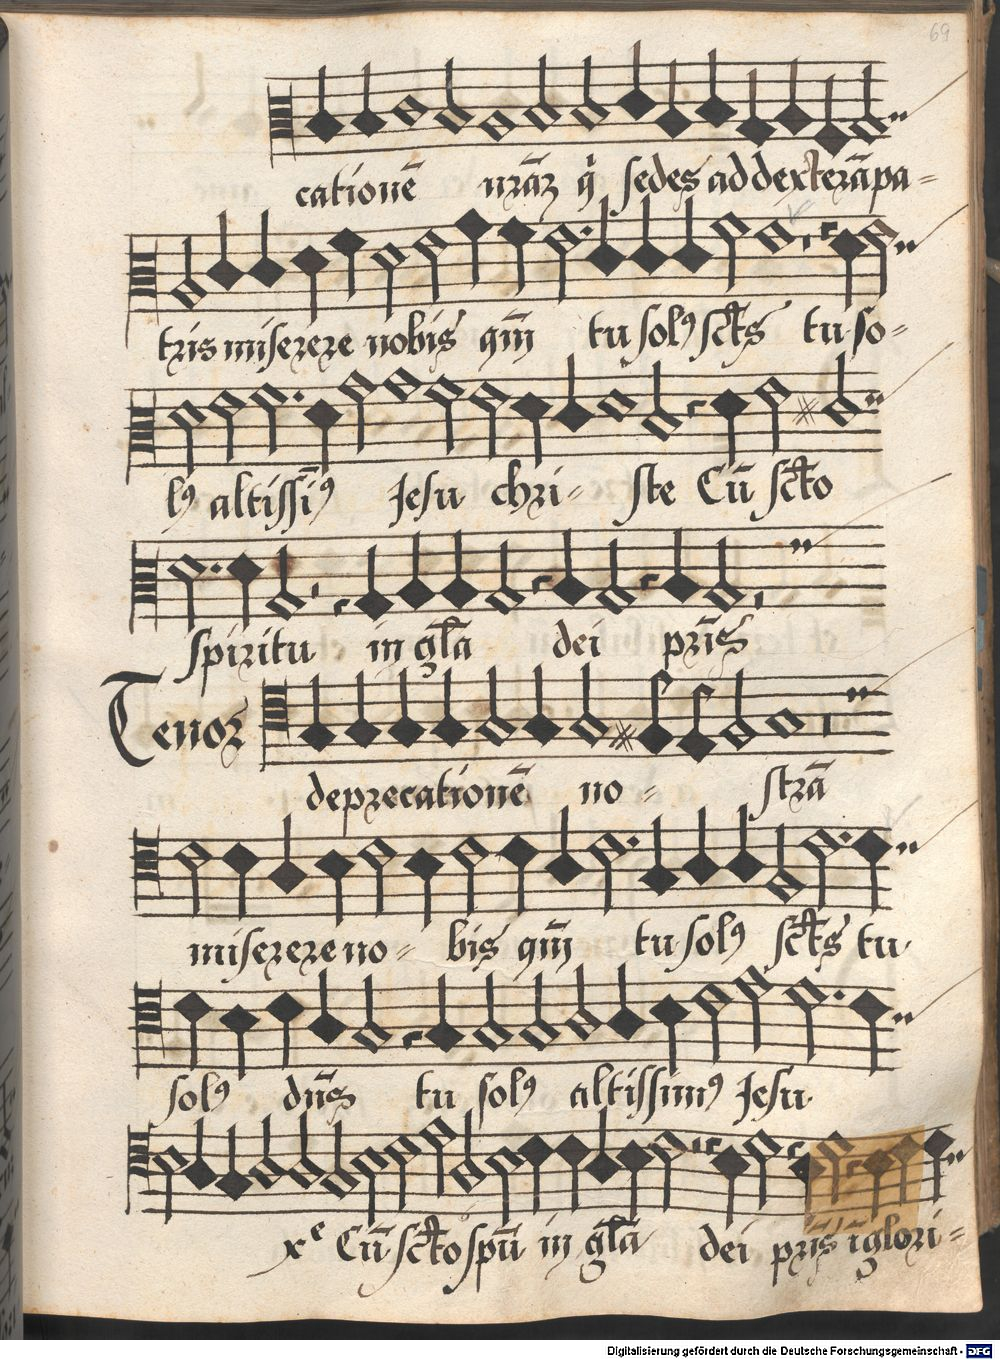 69
cationē nr̄āꝫ q̇ sedes ad dexterā pa=
tris miserere nobis qm̄ tu solꝰ sct̄s tu so=
lꝰ altissīꝰ Jesu chri= ste Cū sct̄o
spiritu in gl̄a dei pr̄is
Tenor
deprecationē no= strā
miserere no= bis qm̄ tu solꝰ sct̄s tu
solꝰ dn̄s tu solꝰ altissimꝰ Jesu
xᵉ Cū sct̄o spū in gl̄a dei pr̄is ī glori=
Digitalisierung gefördert durch die Deutsche Forschungsgemeinschaft - DFG